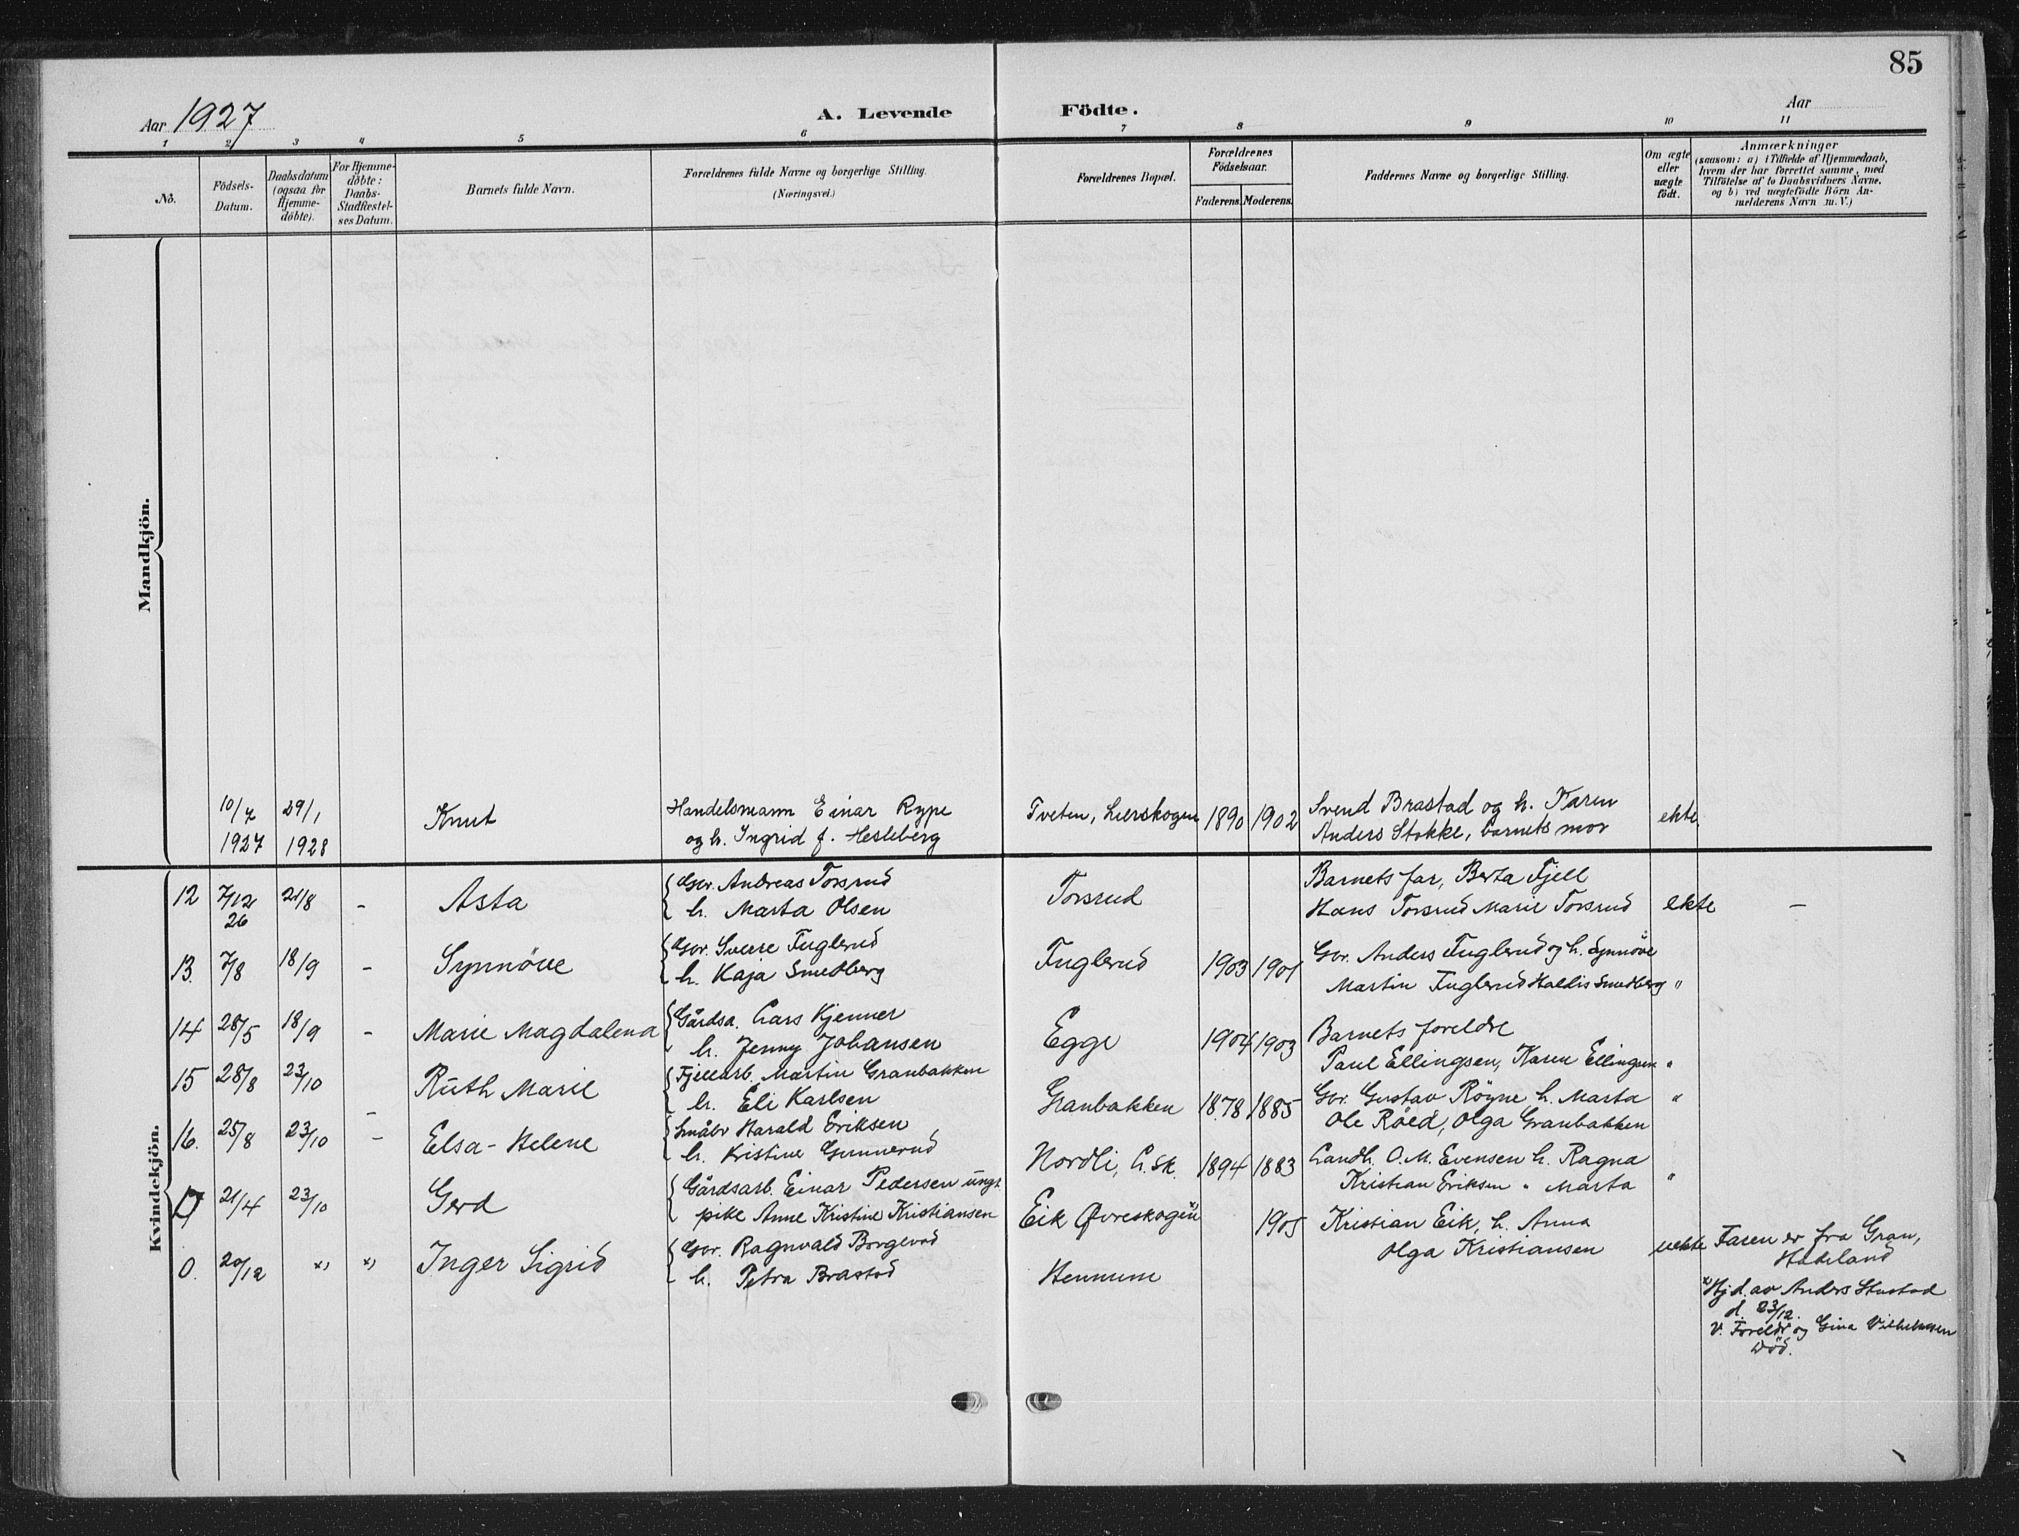 85
Aar 1927
A. Levende Födte.
Aar
1 2 3 4 5 6 7 8 9 10 11
No.
Födsels-
Datum.
Daabsdatum
(ogsaa for
Hjemme-
döbte).
For Hjemme-
döbte:
Daabs-
Stadfæstel-
ses Datum.
Barnets fulde Navn.
Forældrenes fulde Navne og borgerlige Stilling.
(Næringsvei.)
Forældrenes Bopæl.
Forældrenes
Födselsaar.
Faderens. Moderens.
Faddernes Navne og borgerlige Stilling.
Om ægte
eller
uægte
födt.
Anmærkninger
(saasom: a) i Tilfælde af Hjemmedaab,
hvem der har forrettet samme, med
Tilföielse af to Daabsvidners Navne,
og b) ved uægtefödte Börn An-
melderens Navn m. V.)
Mandkjön.
10/7 29/1 Knut Handelsmann Einar Rype Tveten, Lierskogen 1890 1902 Svend Brastad og h. Karen ekte.
1927 1928 og h. Ingrid f. Hesleberg Anders Stokke, barnets mor
Kvindekjön.
12 7/12 21/8 - Asta Gbr. Andreas Torsrud Torsrud Barnets far, Berta Fjell
26 h. Marta Olsen Hans Torsrud Marie Torsrud ekte -
13. 7/8 18/9 - Synnöve Gbr. Sverre Fuglerud Fuglerud 1903 1901 Gbr. Anders Fuglerud og h. Synnöve
h. Kaja Smedberg Martin Fuglerud Hallis Smedberg "
14 28/5 18/9 - Marie Magdalena Gårdsa. Lars Kjenner Egge 1904 1903 Barnets foreldre
h. Jenny Johansen Paul Ellingsen, Karen Ellingsen "
15 28/8 23/10 - Ruth Marie Fjellarb. Martin Granbakken Granbakken 1878 1885 Gbr. Gustav Röyne h. Marta "
h. Eli Karlsen Ole Röed, Olga Granbakken
16. 25/8 23/10 - Elsa-Helene Småbr Harald Eriksen Nordli, L.sk. 1894 1883 Landh. O. M. Evensen h. Ragna
h. Kristine Gunnerud Kristian Eriksen " Marta "
17 21/4 23/10 Gerd Gårdsarb. Einar Pedersen ungk. Eik Øvreskogen 1905 Kristian Eik, h. Anna
pike Anne Kristine Kristiansen Olga Kristiansen uekte Faren er fra Gran,
Hadeland
0. 20/12 x) x) Inger Sigrid Gbr. Ragnvald Borgerud Hennum
h. Petra Brastad
x) Hjd. av Anders Stustad
d. 23/12.
V. Foreldr og Gina Vilhelmsen
Död.